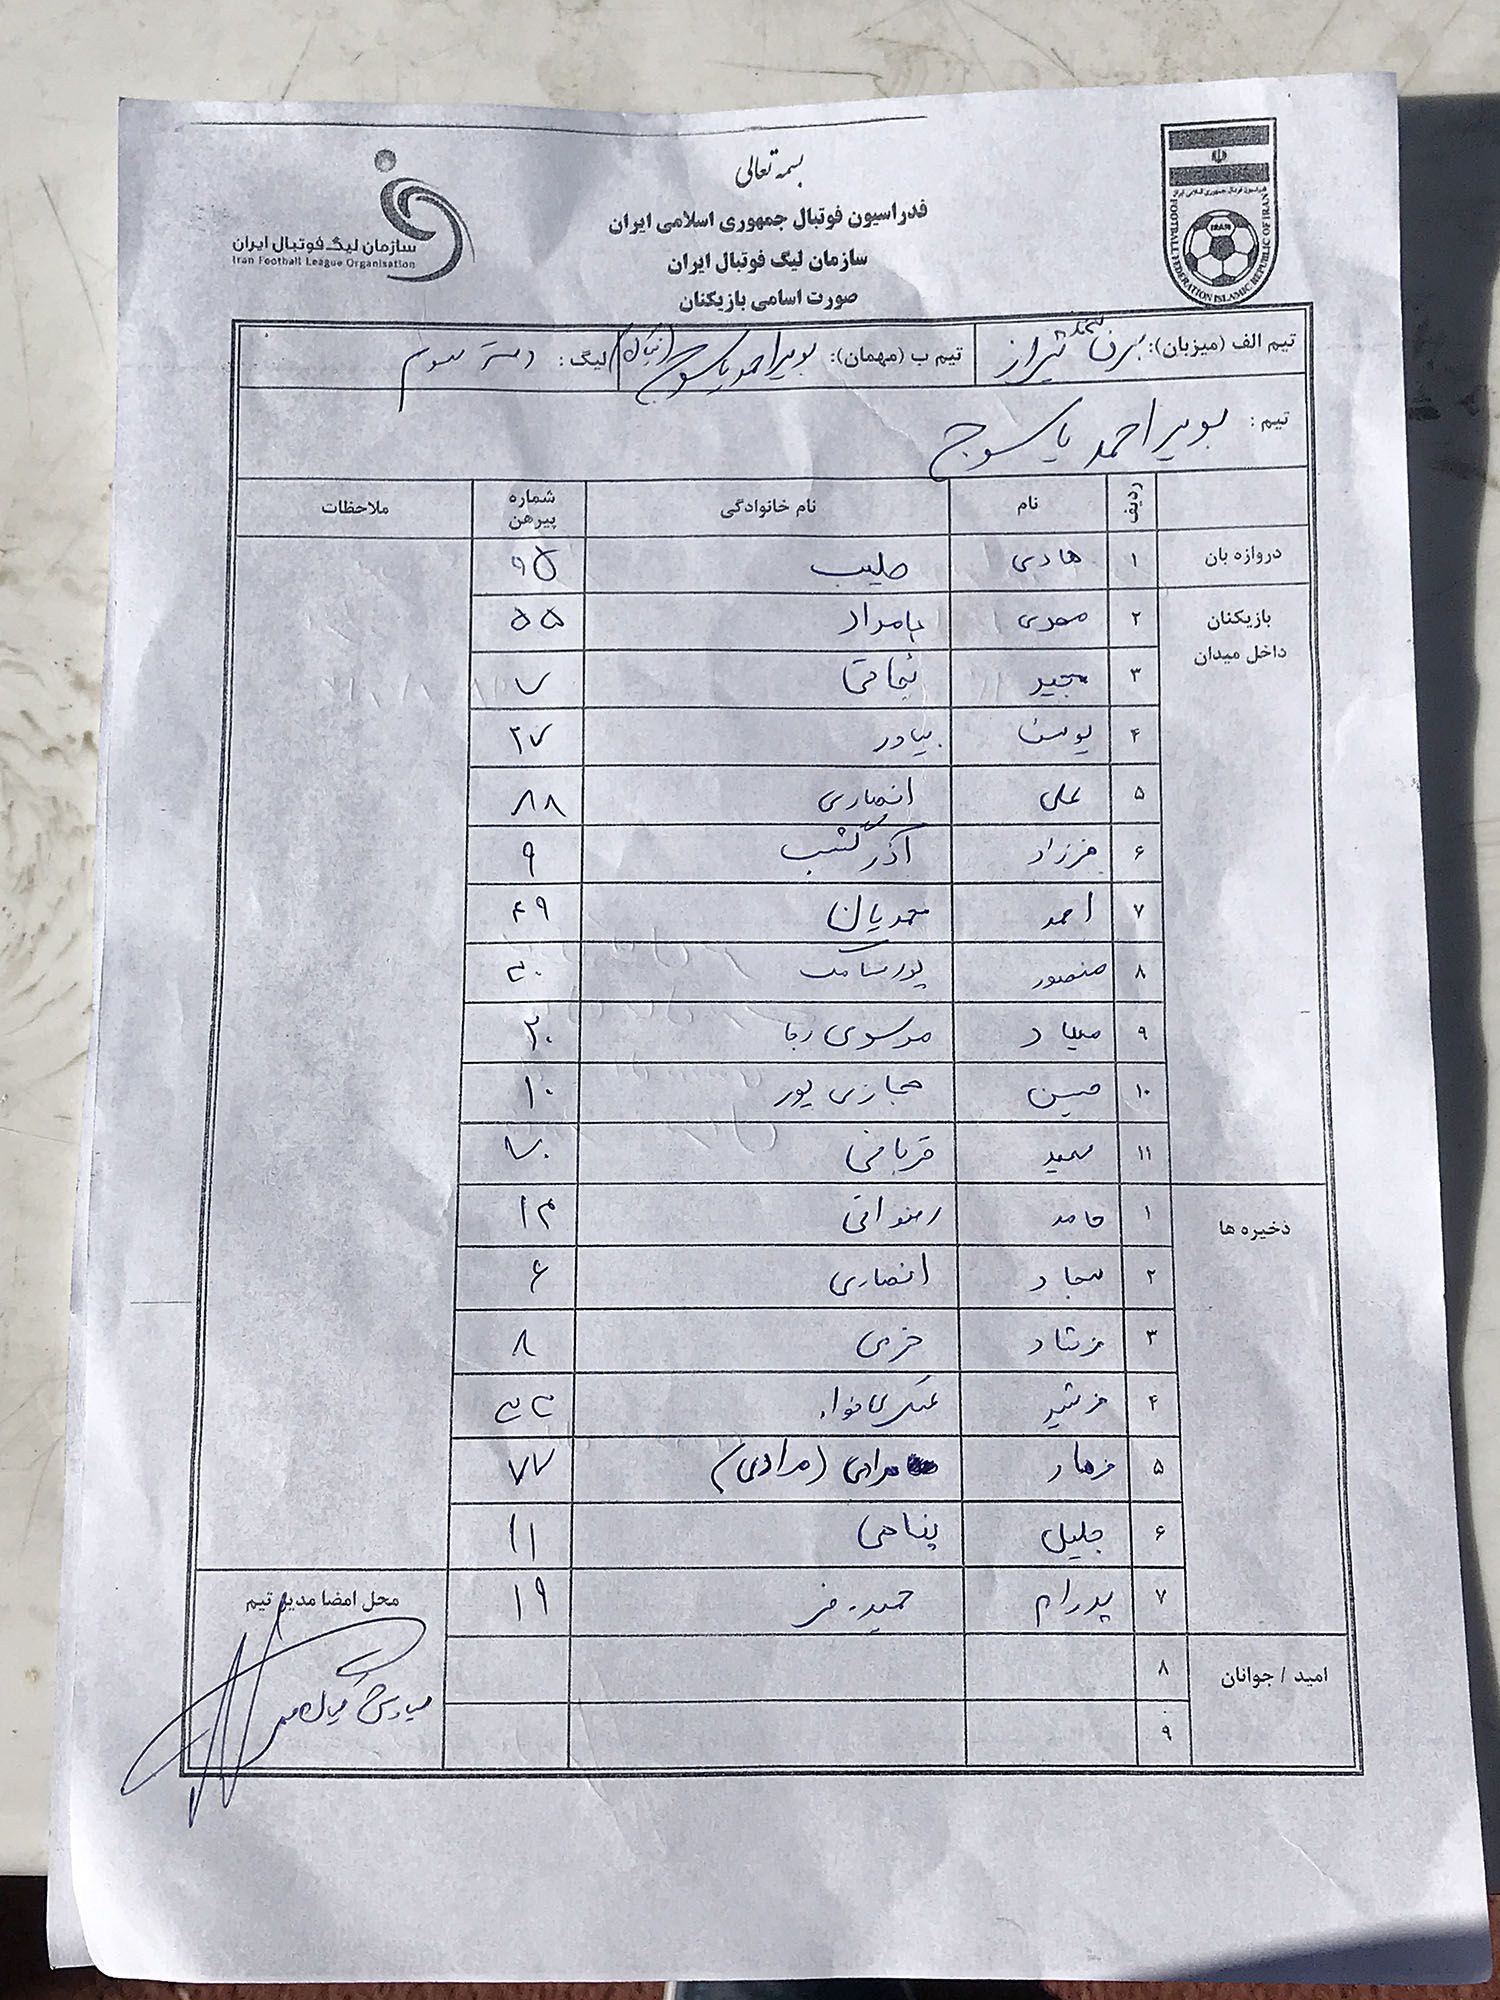 بسمه تعالی
فدراسیون فوتبال جمهوری اسلامی ایران
سازمان لیگ فوتبال ایران
صورت اسامی بازیکنان
سازمان لیگ فوتبال ایران
Iran Football League Organisation
فدراسیون فوتبال جمهوری اسلامی ایران
IRAN
FOOTBALL FEDERATION ISLAMIC REPUBLIC OF IRAN
تیم الف (میزبان): برق شیراز تیم ب (مهمان): بویراحمد یاسوج لیگ : دسته سوم
تیم : بویراحمد یاسوج
ردیف نام نام خانوادگی شماره پیرهن ملاحظات
دروازه بان ۱ هادی صلیب ۹۵
بازیکنان داخل میدان ۲ مهدی بامداد ۵۵
۳ مجید نجاتی ۷
۴ یوسف بیاور ۲۷
۵ علی انصاری ۸۸
۶ فرزاد آذرگشب ۹
۷ احمد محمدیان ۴۹
۸ منصور پورسامک ۳۰
۹ میلاد موسوی رجا ۲۰
۱۰ حسین حجازی پور ۱۰
۱۱ سعید قربانی ۷۰
ذخیره ها ۱ حامد رضوانی ۱۳
۲ سجاد انصاری ۶
۳ فرشاد خرمی ۸
۴ فرشید عسکری خواه ۳۳
۵ فرهاد مرادی (مرادی) ۷۷
۶ جلیل پناهی ۱۱
۷ پدرام حمیدفر ۱۹
امید / جوانان ۸
۹
محل امضا مدیر تیم
سیاوش